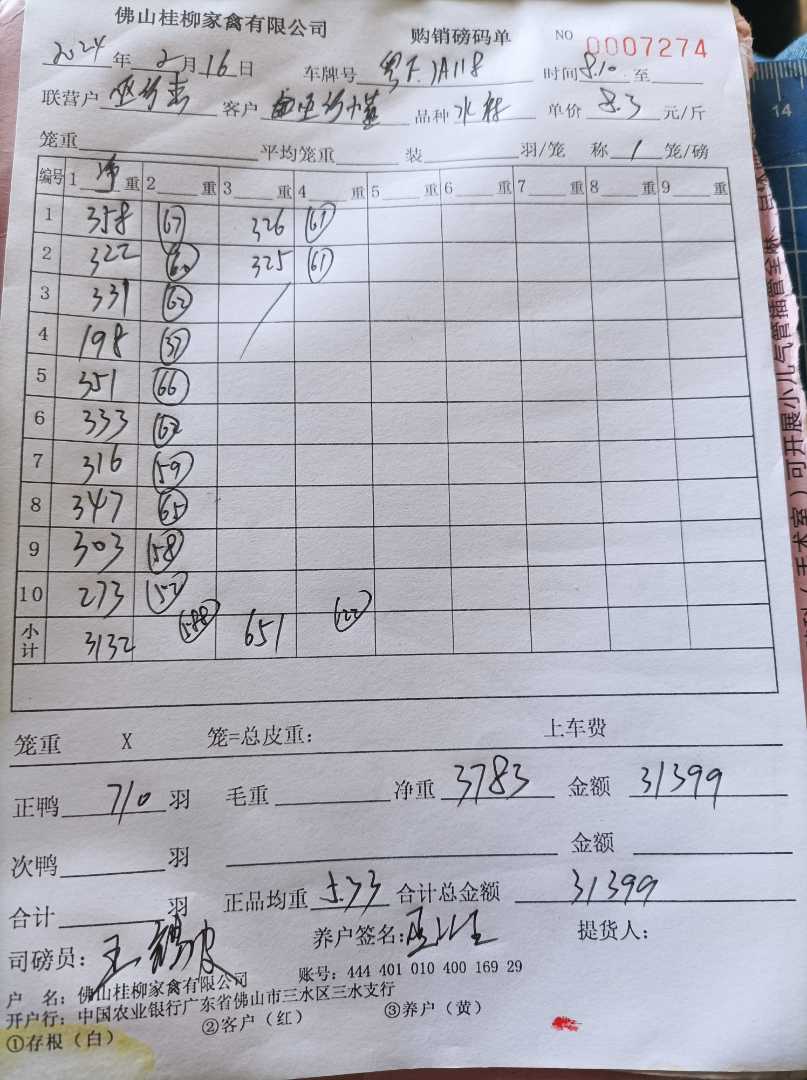 佛山桂柳家禽有限公司 购销磅码单 NO 0007274
2024年 2月16日 车牌号 时间8.10至
联营户 客户 品种 水 单价 8.3 元/斤
笼重 平均笼重 装 羽/笼 称 1 笼/磅
编号 1 净 重 2 重 3 重 4 重 5 重 6 重 7 重 8 重 9 重
1 358 67 326 61
2 322 60 325 61
3 331 62
4 198 37
5 351 66
6 333 62
7 316 59
8 347 65
9 303 58
10 273 52
小计 3132 588 651 122
笼重 X 笼=总皮重: 上车费
正鸭 710 羽 毛重 净重 3783 金额 31399
次鸭 羽 金额
合计 羽 正品均重 5.33 合计总金额 31399
司磅员: 王 养户签名: 提货人:
户 名: 佛山桂柳家禽有限公司 账号: 444 401 010 400 169 29
开户行: 中国农业银行广东省佛山市三水区三水支行
①存根(白) ②客户(红) ③养户(黄)
14
可开展小儿气管插管全麻